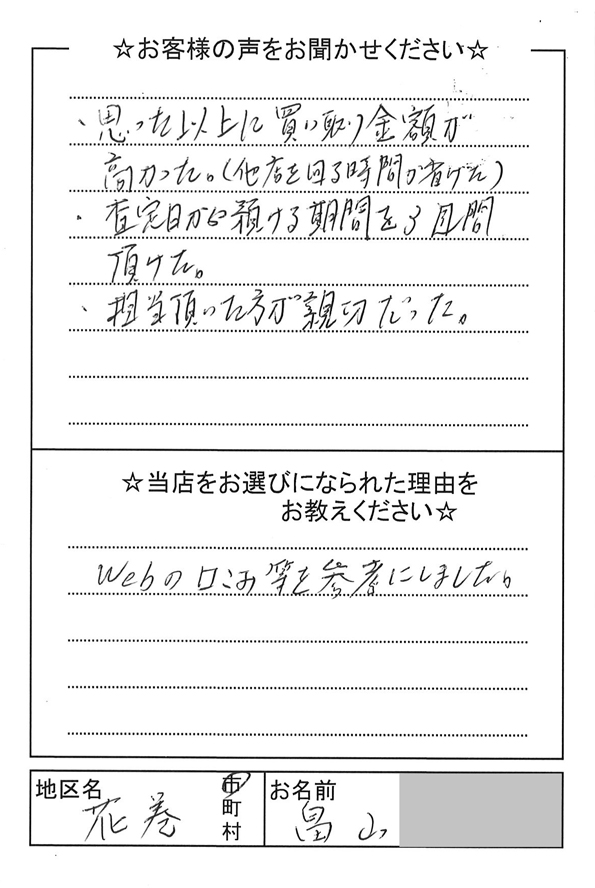 ☆お客様の声をお聞かせください☆
・思った以上に買い取り金額が
高かった。(他店を回る時間が省けた)
・査定日から預ける期間を3週間
頂けた。
・担当頂いた方が親切だった。
☆当店をお選びになられた理由を
お教えください☆
Webの口こみ等を参考にしました。
地区名
花巻
市
町
村
お名前
畠山